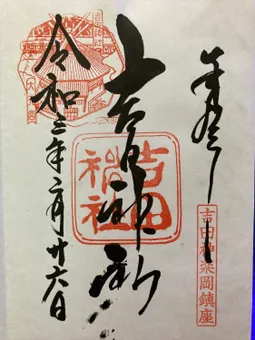 奉拝
吉田神社
吉田神社
吉田神楽岡鎮座
令和三年二月廿六日